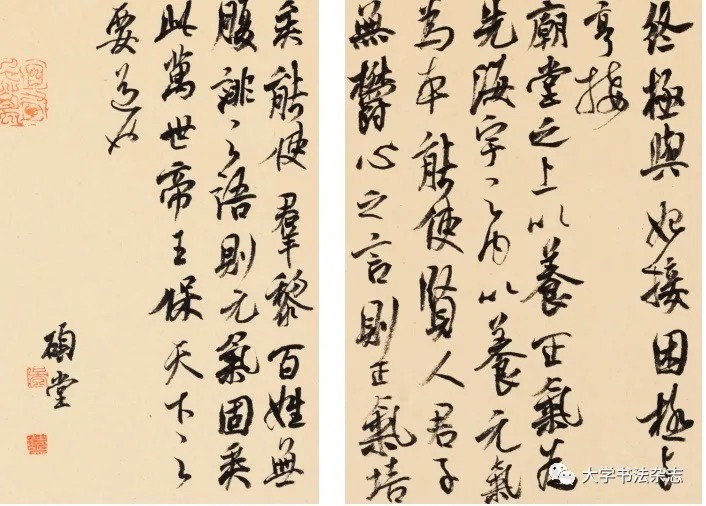 終極與始接困極與
亨接
廟堂之上以養正氣為
先海宇之内以養元氣
為本能使賢人君子
無鬱心之言則正氣培
矣能使羣黎百姓無
腹誹之語則元氣固矣
此萬世帝王保天下之
要道也
碩堂
大学书法杂志